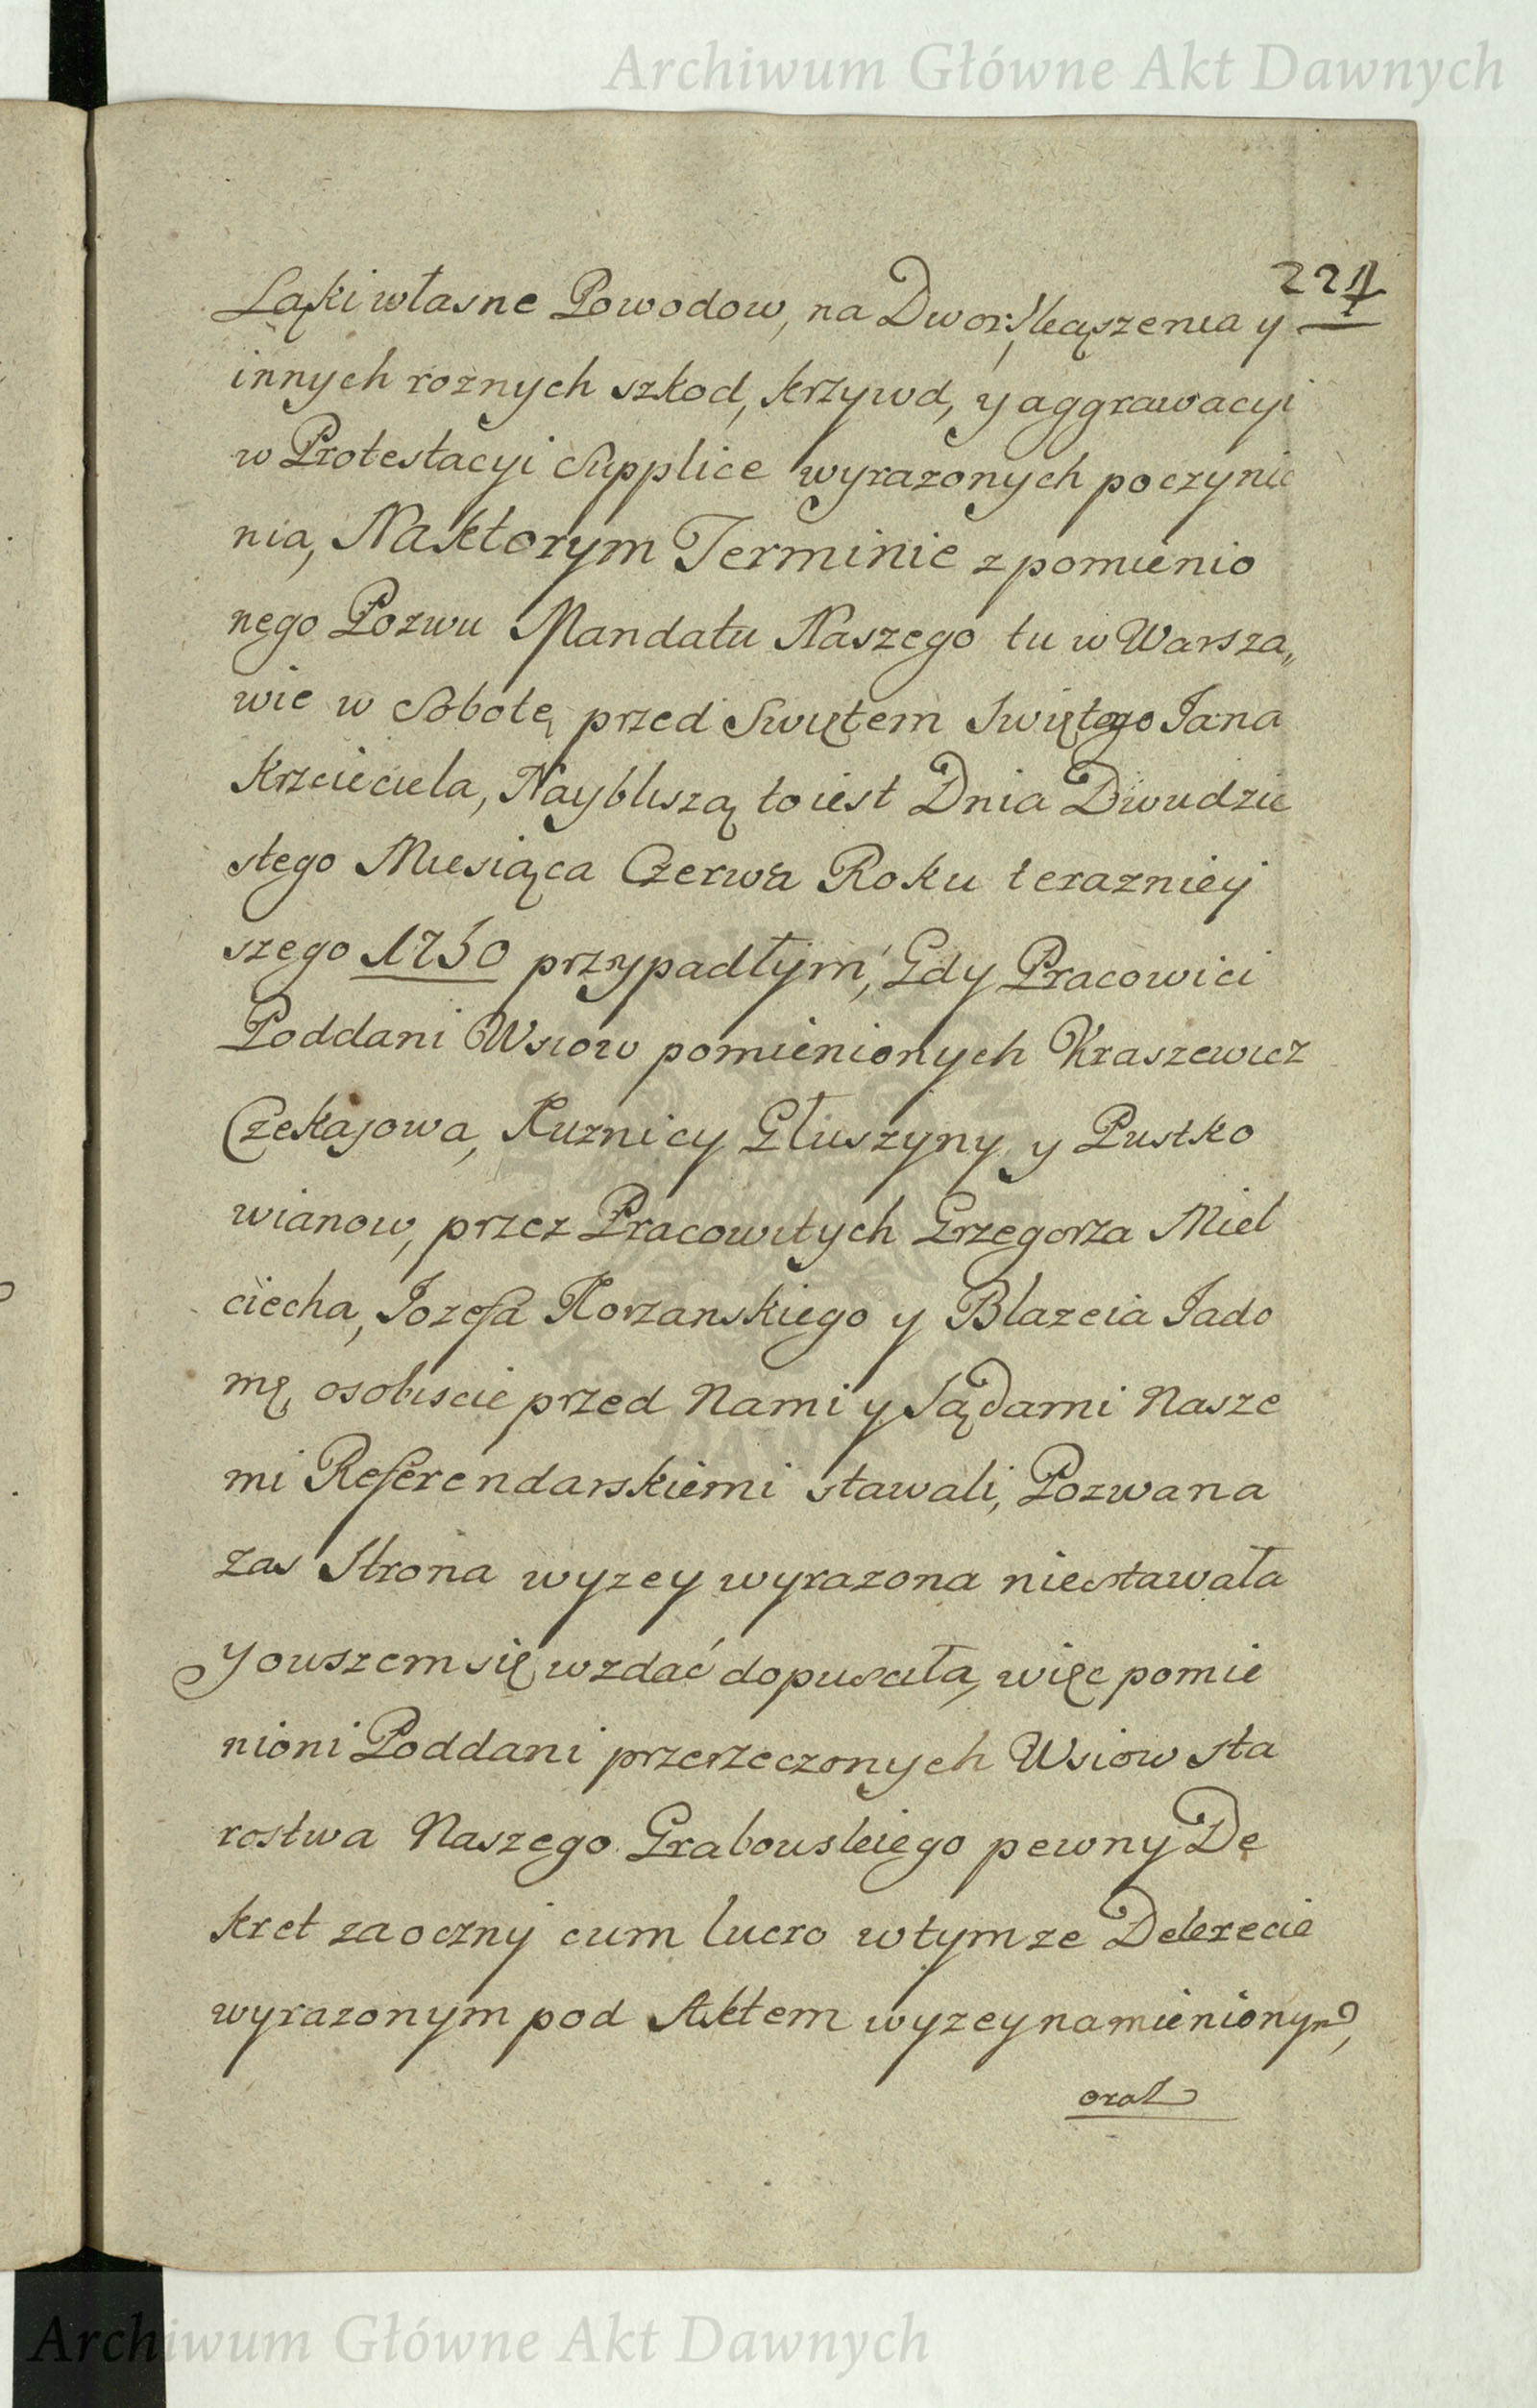 Archiwum Główne Akt Dawnych
221
Łąki własne Powodow, na Dwor, y
innych roznych szkod, krzywd, y aggrawacyi
w Protestacyi Supplice wyrazonych poczynie
nia, Naktorym Terminie z pomienio
nego Pozwu Mandatu Naszego tu w Warsza„
wie w Sobotę przed Swiętem Swiętego Jana
Krzciciela, Naybliszą to iest Dnia Dwudzie
stego Miesiąca Czerwca Roku terazniey
szego 1750 przypadłym, Gdy Pracowici
Poddani Wsiow pomienionych Kraszewicz
Czekajowa, Kuznicy Głuszyny y Pustko
wianow, przez Pracowitych Grzegorza Miel
ciecha, Jozefa Korzanskiego y Blazeia Jado
mę osobiscie przed Nami y Sądami Nasze
mi Referendarskiemi stawali, Pozwana
zas Strona wyzey wyrazona niestawała
y owszem się wzdać dopusciła, więc pomie
nioni Poddani przerzeczonych Wsiow sta
rostwa Naszego Grabowskiego pewny De
kret zaoczny cum lucro w tymze Dekrecie
wyrazonym pod Aktem wyzey namienionym,
oraz
Archiwum Główne Akt Dawnych